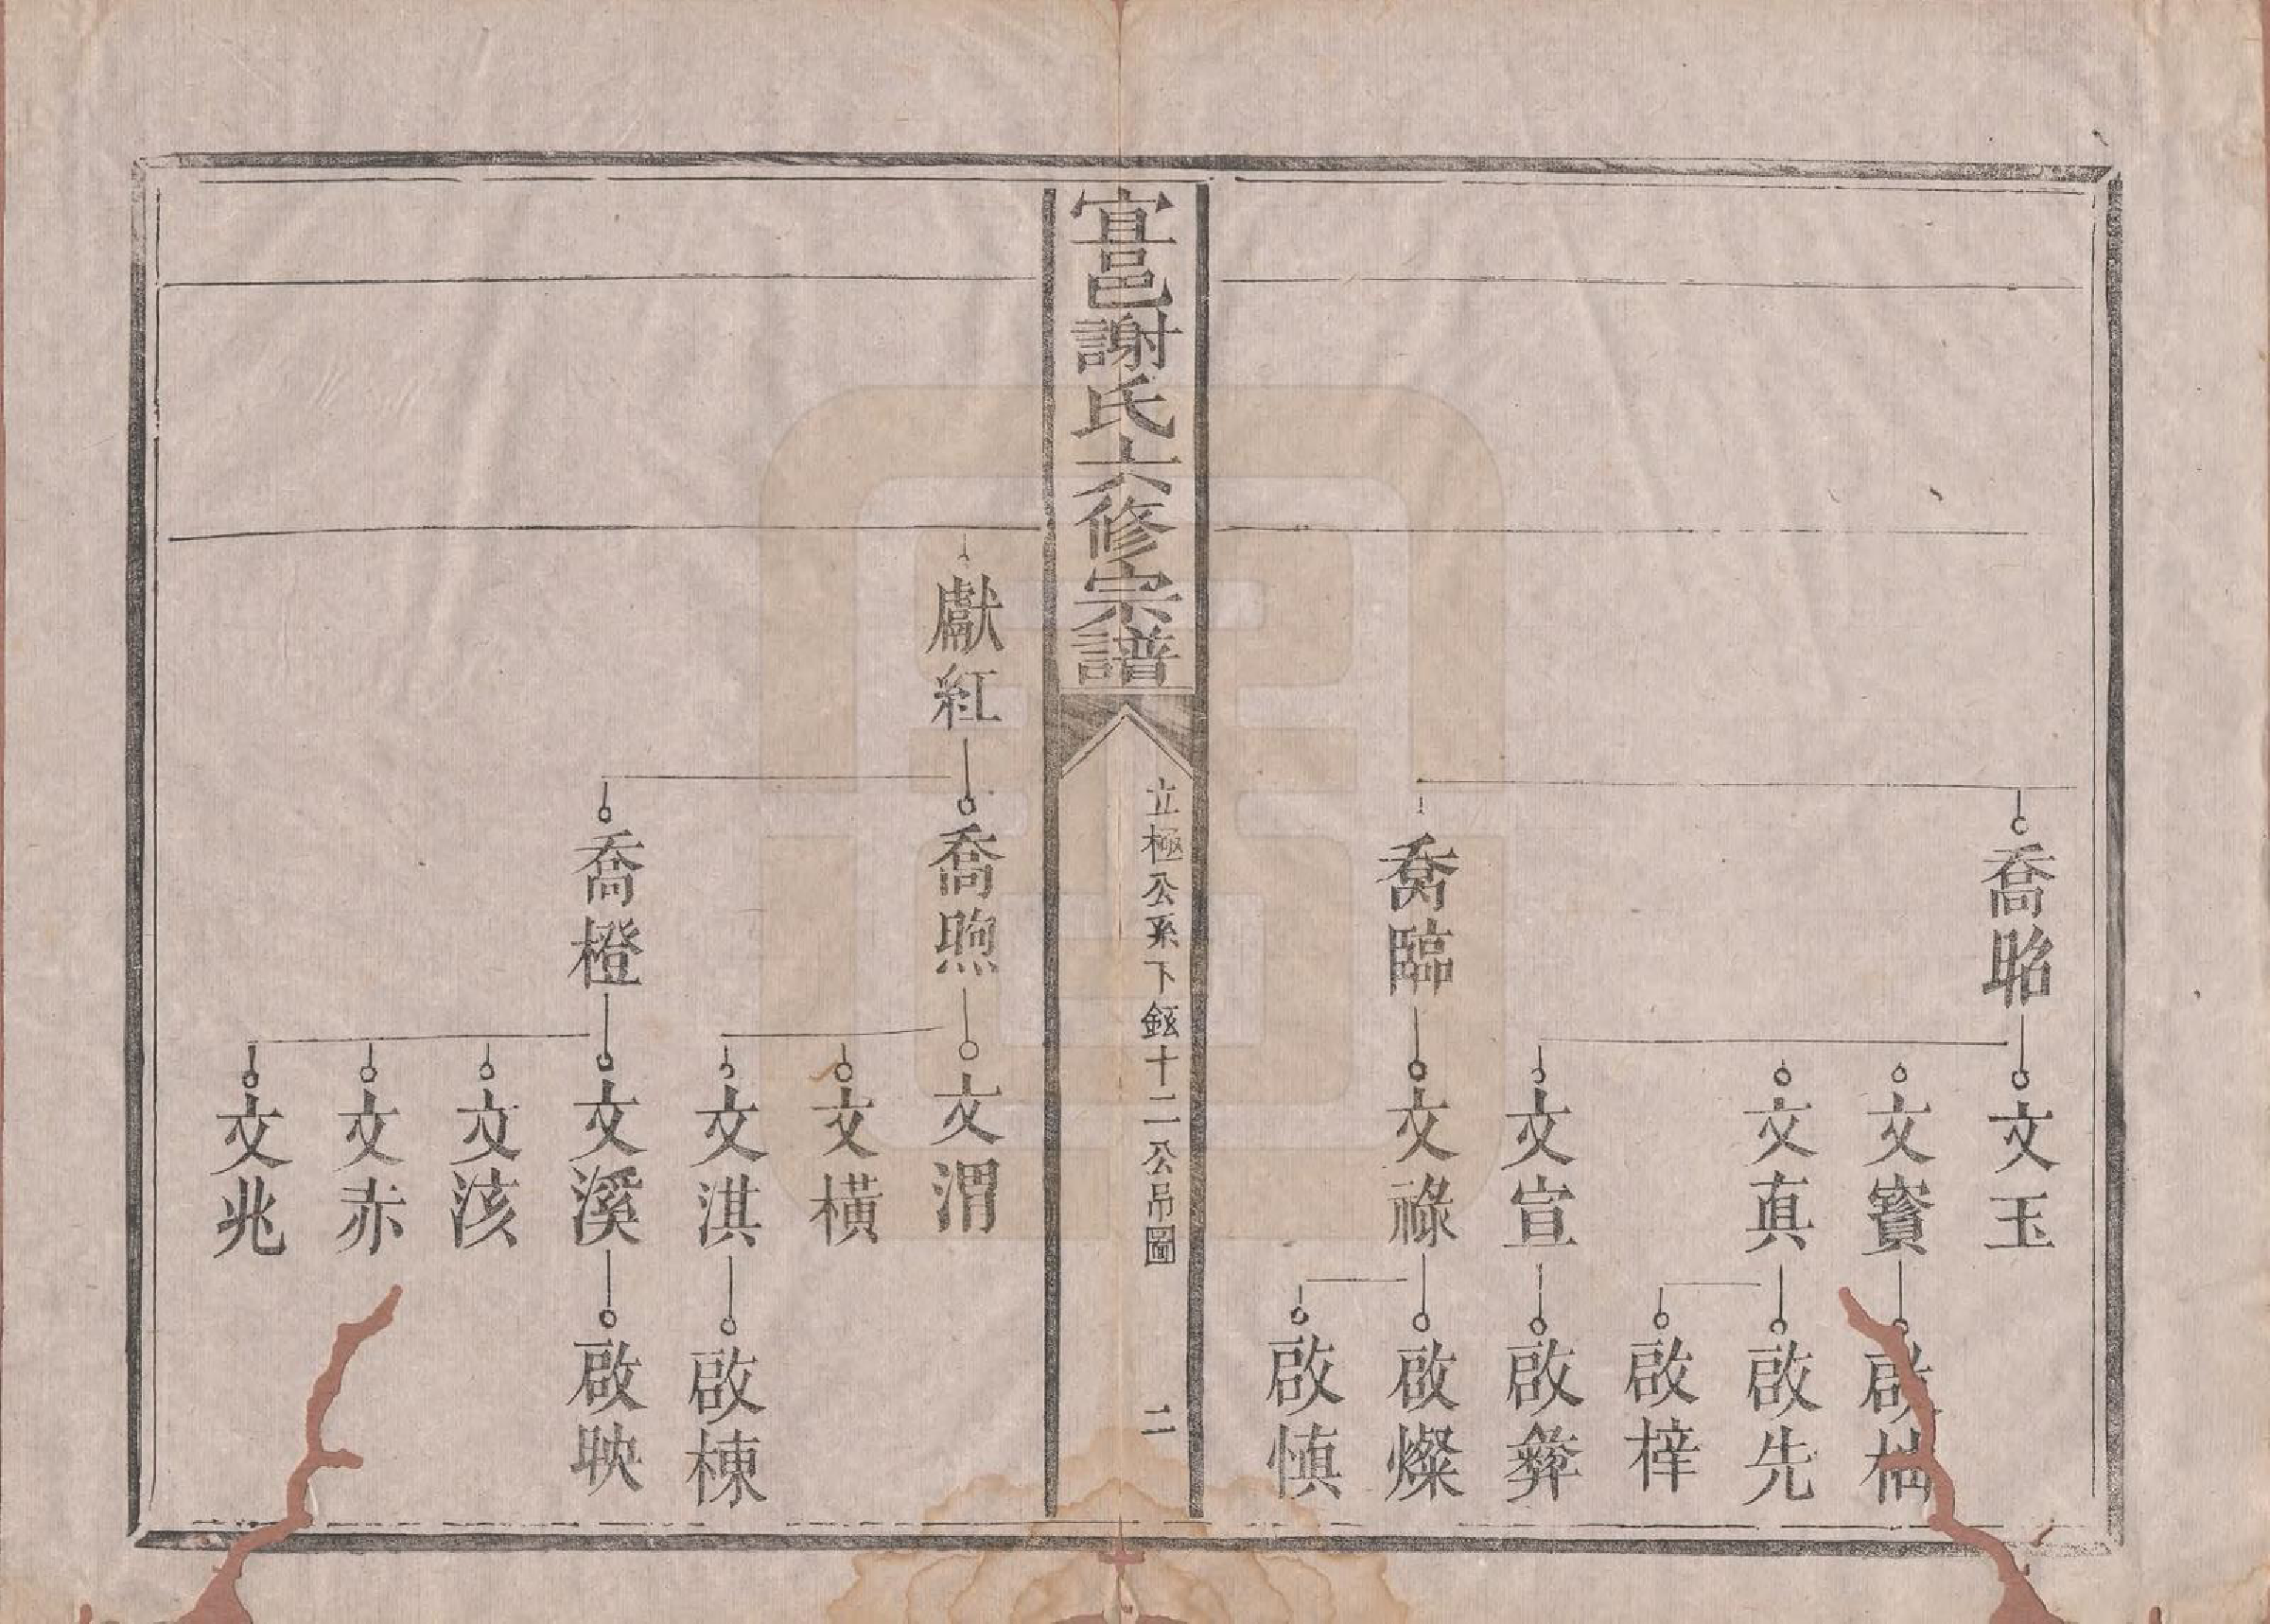 喬昭
文玉
文賓
文真
啟先
啟梓
文宣
啟彜
喬臨
文祿
啟燦
啟慎
宜邑謝氏六修宗譜
立極公系下鉉十二公吊圖
二
獻紅
喬煦
文渭
文橫
文淇
啟棟
喬橙
文溪
啟映
文渂
文赤
文兆